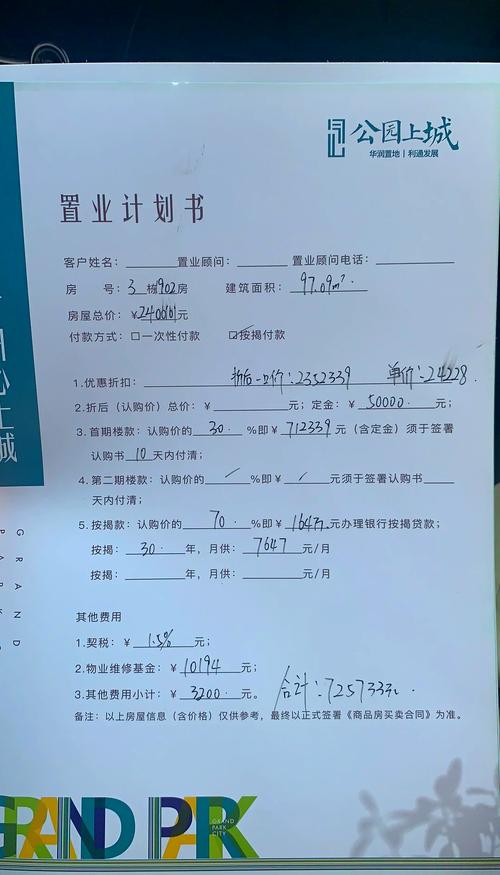 公园上城
华润置地 | 利通发展
置业计划书
客户姓名：________ 置业顾问：________ 置业顾问电话：________
房 号：3 栋902房 建筑面积：97.09m².
房屋总价：¥2400101元
付款方式：□一次性付款 ☑按揭付款
1.优惠折扣：折后一口价：2352339 单价：24228.
2.折后（认购价）总价：¥________元；定金：¥50000.元；
3.首期楼款：认购价的30.%即¥712339元（含定金）须于签署
认购书10天内付清；
4.第二期楼款：认购价的/%即¥/元须于签署认购书____
天内付清；
5.按揭款：认购价的70.%即¥164万元办理银行按揭贷款；
按揭：30.年，月供：7647元/月
按揭：________年，月供：________元/月
其他费用
1.契税：¥1.5%元；
2.物业维修基金：¥10194元；
3.其他费用小计：¥3200.元。 合计：725733元.
备注：以上房屋信息（含价格）仅供参考，最终以正式签署《商品房买卖合同》为准。
GRAND PARK
GRAND
PARK
CITY
上城
GRAND
PARK